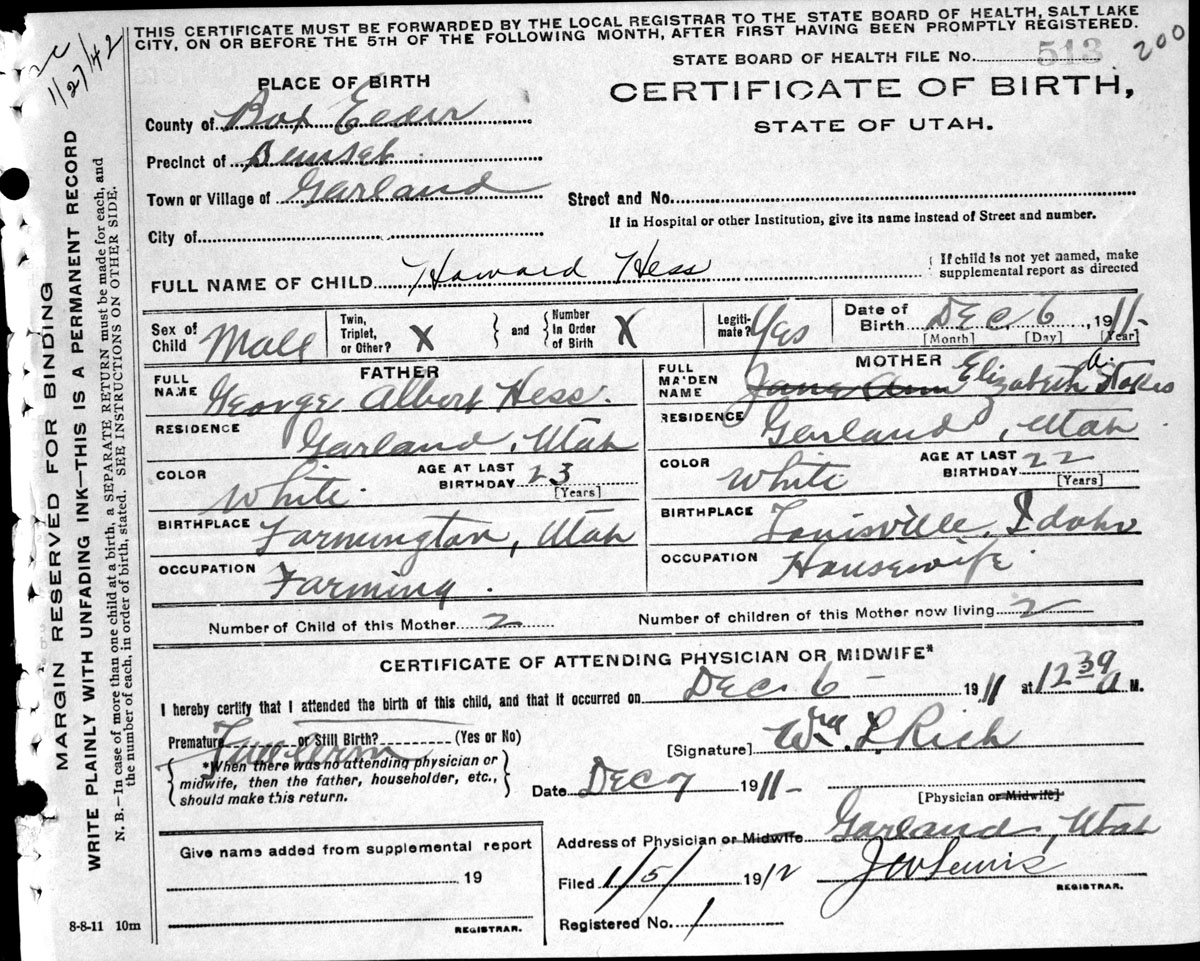 THIS CERTIFICATE MUST BE FORWARDED BY THE LOCAL REGISTRAR TO THE STATE BOARD OF HEALTH, SALT LAKE
CITY, ON OR BEFORE THE 5TH OF THE FOLLOWING MONTH, AFTER FIRST HAVING BEEN PROMPTLY REGISTERED.
1/27/42
STATE BOARD OF HEALTH FILE No. 513 200
PLACE OF BIRTH
CERTIFICATE OF BIRTH,
STATE OF UTAH.
County of Box Elder
Precinct of
Town or Village of Garland
Street and No.
If in Hospital or other Institution, give its name instead of Street and number.
City of
FULL NAME OF CHILD Howard Hess
{ If child is not yet named, make
supplemental report as directed
Sex of Child Male
Twin, Triplet, or Other? X
and
Number In Order of Birth X
Legiti-mate? Yes
Date of Birth Dec. 6, 1911-
[Month] [Day] [Year]
FATHER
FULL NAME George Albert Hess.
RESIDENCE Garland, Utah
COLOR White.
AGE AT LAST BIRTHDAY 23
[Years]
BIRTHPLACE Farmington, Utah
OCCUPATION Farming.
MOTHER
FULL MAIDEN NAME Jane Ann Elizabeth A. Stokes
RESIDENCE Garland, Utah
COLOR White
AGE AT LAST BIRTHDAY 22
[Years]
BIRTHPLACE Louisville, Idaho
OCCUPATION Housewife.
Number of Child of this Mother 2
Number of children of this Mother now living 2
CERTIFICATE OF ATTENDING PHYSICIAN OR MIDWIFE*
I hereby certify that I attended the birth of this child, and that it occurred on Dec. 6 - 1911 at 12 39 a M.
Premature or Still Birth? (Yes or No)
*When there was no attending physician or
midwife, then the father, householder, etc.,
should make this return.
[Signature] Wm. L Rich
[Physician or Midwife]
Date Dec 7 1911-
Address of Physician or Midwife Garland, Utah
Give name added from supplemental report
19
REGISTRAR.
Filed 1/5/ 1912
J W Lewis
REGISTRAR.
Registered No. 1
8-8-11 10m
MARGIN RESERVED FOR BINDING
WRITE PLAINLY WITH UNFADING INK—THIS IS A PERMANENT RECORD
N. B.—In case of more than one child at a birth, a SEPARATE RETURN must be made for each, and
the number of each, in order of birth, stated. SEE INSTRUCTIONS ON OTHER SIDE.